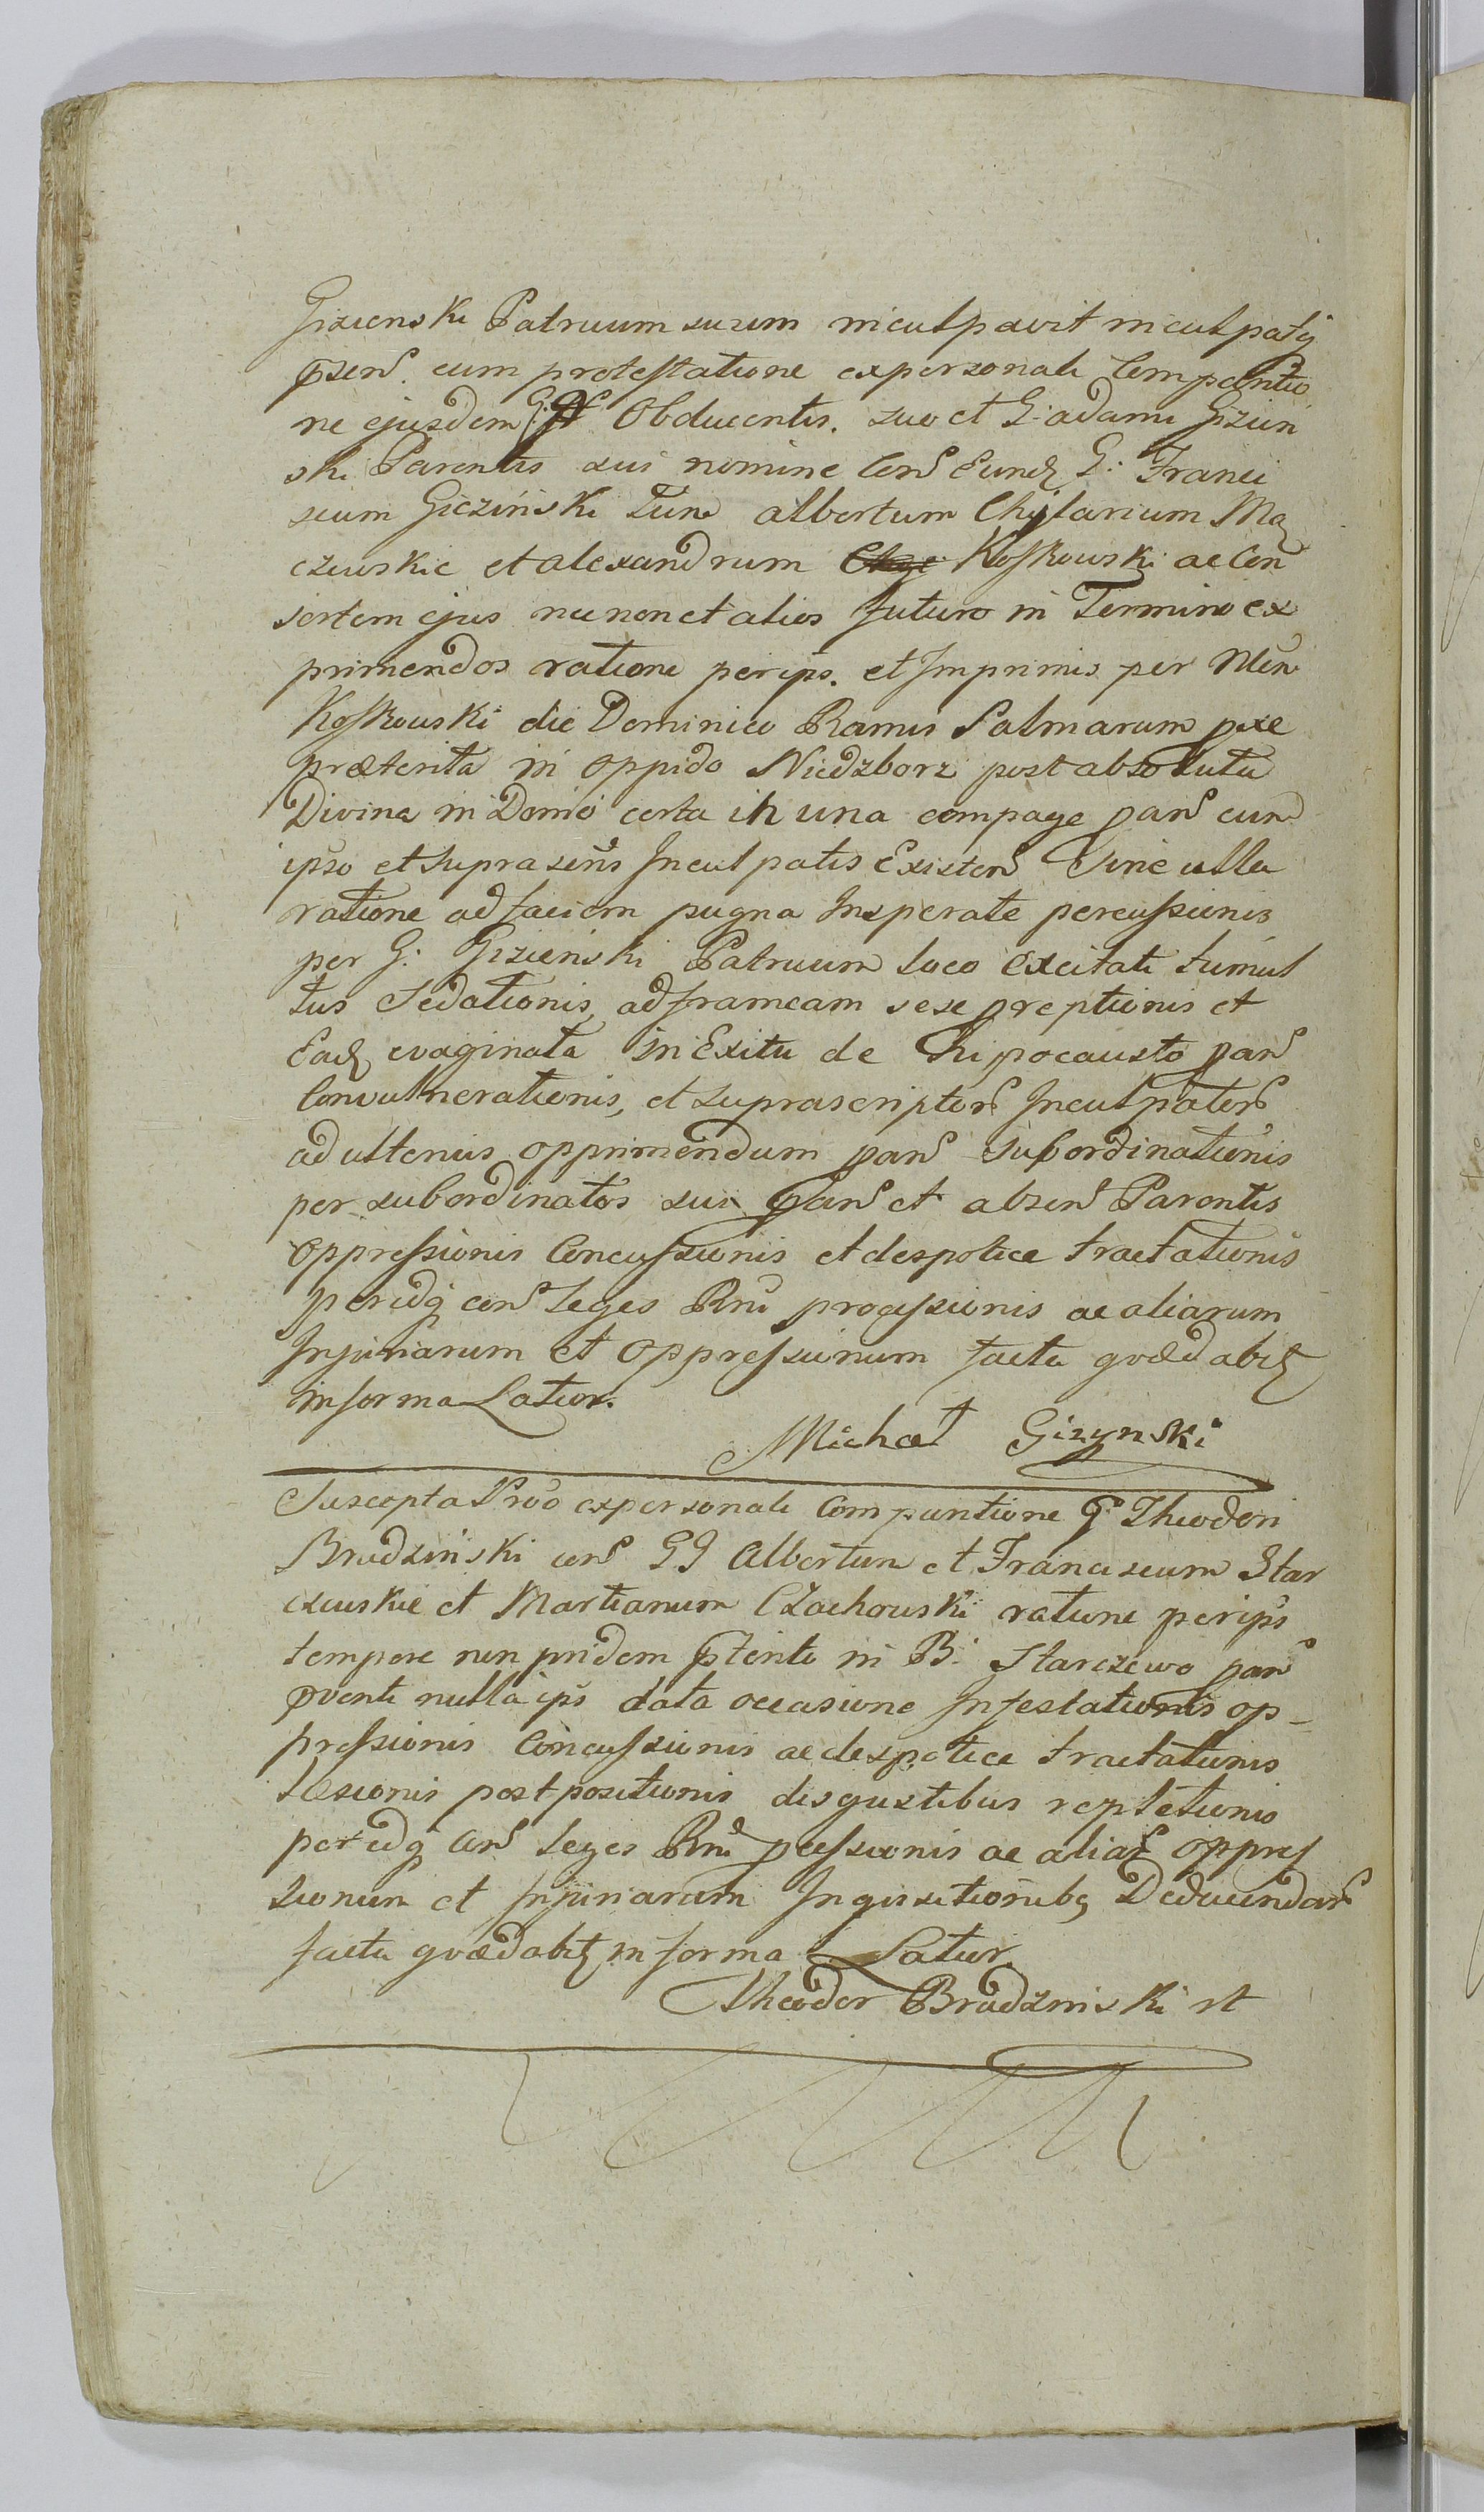 Gizienski Patruum suum inculpavit inculpatq
pzen. cum protestatione expersonali Compantio
ne ejusdem G: Obducentis. suo et G: adami Gizin
ski Parentis sui nomine Con Eund G: Franci
scum Giezińiski Tum albertum Chylarium Ma
czewskie et alexandrum Kosskowski ac Con
sortem ejus nec non et alios futuro in Termino ex
primendos ratione perips. et Imprimis per Mm
Kosskowski die Dominico Ramis Palmarum pxe
præterita in oppido Niedzborz post absoluta
Divina in Domo certa in una compage pan cum
ipso et suprascris Inculpatis Existen Sine ulla
ratione ad faciem pugna Insperate percussionis
per G: Gizieński Patruum loco excitati tumul
tus Sedationis, ad frameam sese preptionis et
Ead evaginata in Exitu de hipocausto pan
Convulnerationis, et suprascriptor Inculpator
ad ulterius opprimendum pan subordinationis
per subordinatos sui pan et absen Parentis
oppressionis Concussionis et despotice tractationis
peridq con Leges Rni processionis ac aliarum
Injuriarum et oppressionum facta qvæd abit
in forma Latior.
Michał Gizynski
Suscepta Pro expersonali Compantione G: Theodori
Brudziński con GG Albertum et Franciscum Star
czewskie et Martianum Czachowski ratione perips
tempore non pridem pterito in B: Starczewo pan
pventi nulla ips data occasione Infestationis op_
pressionis Concussionis ac despotice tractationis
læsionis postpositionis disgustibus repletionis
peridq con Leges Rni pcessionis ac aliar oppres
sionum et Injuriarum Inqvisitionibq Deducendar
facta qvæd abit in forma Latior.
Theodor Brudzinski